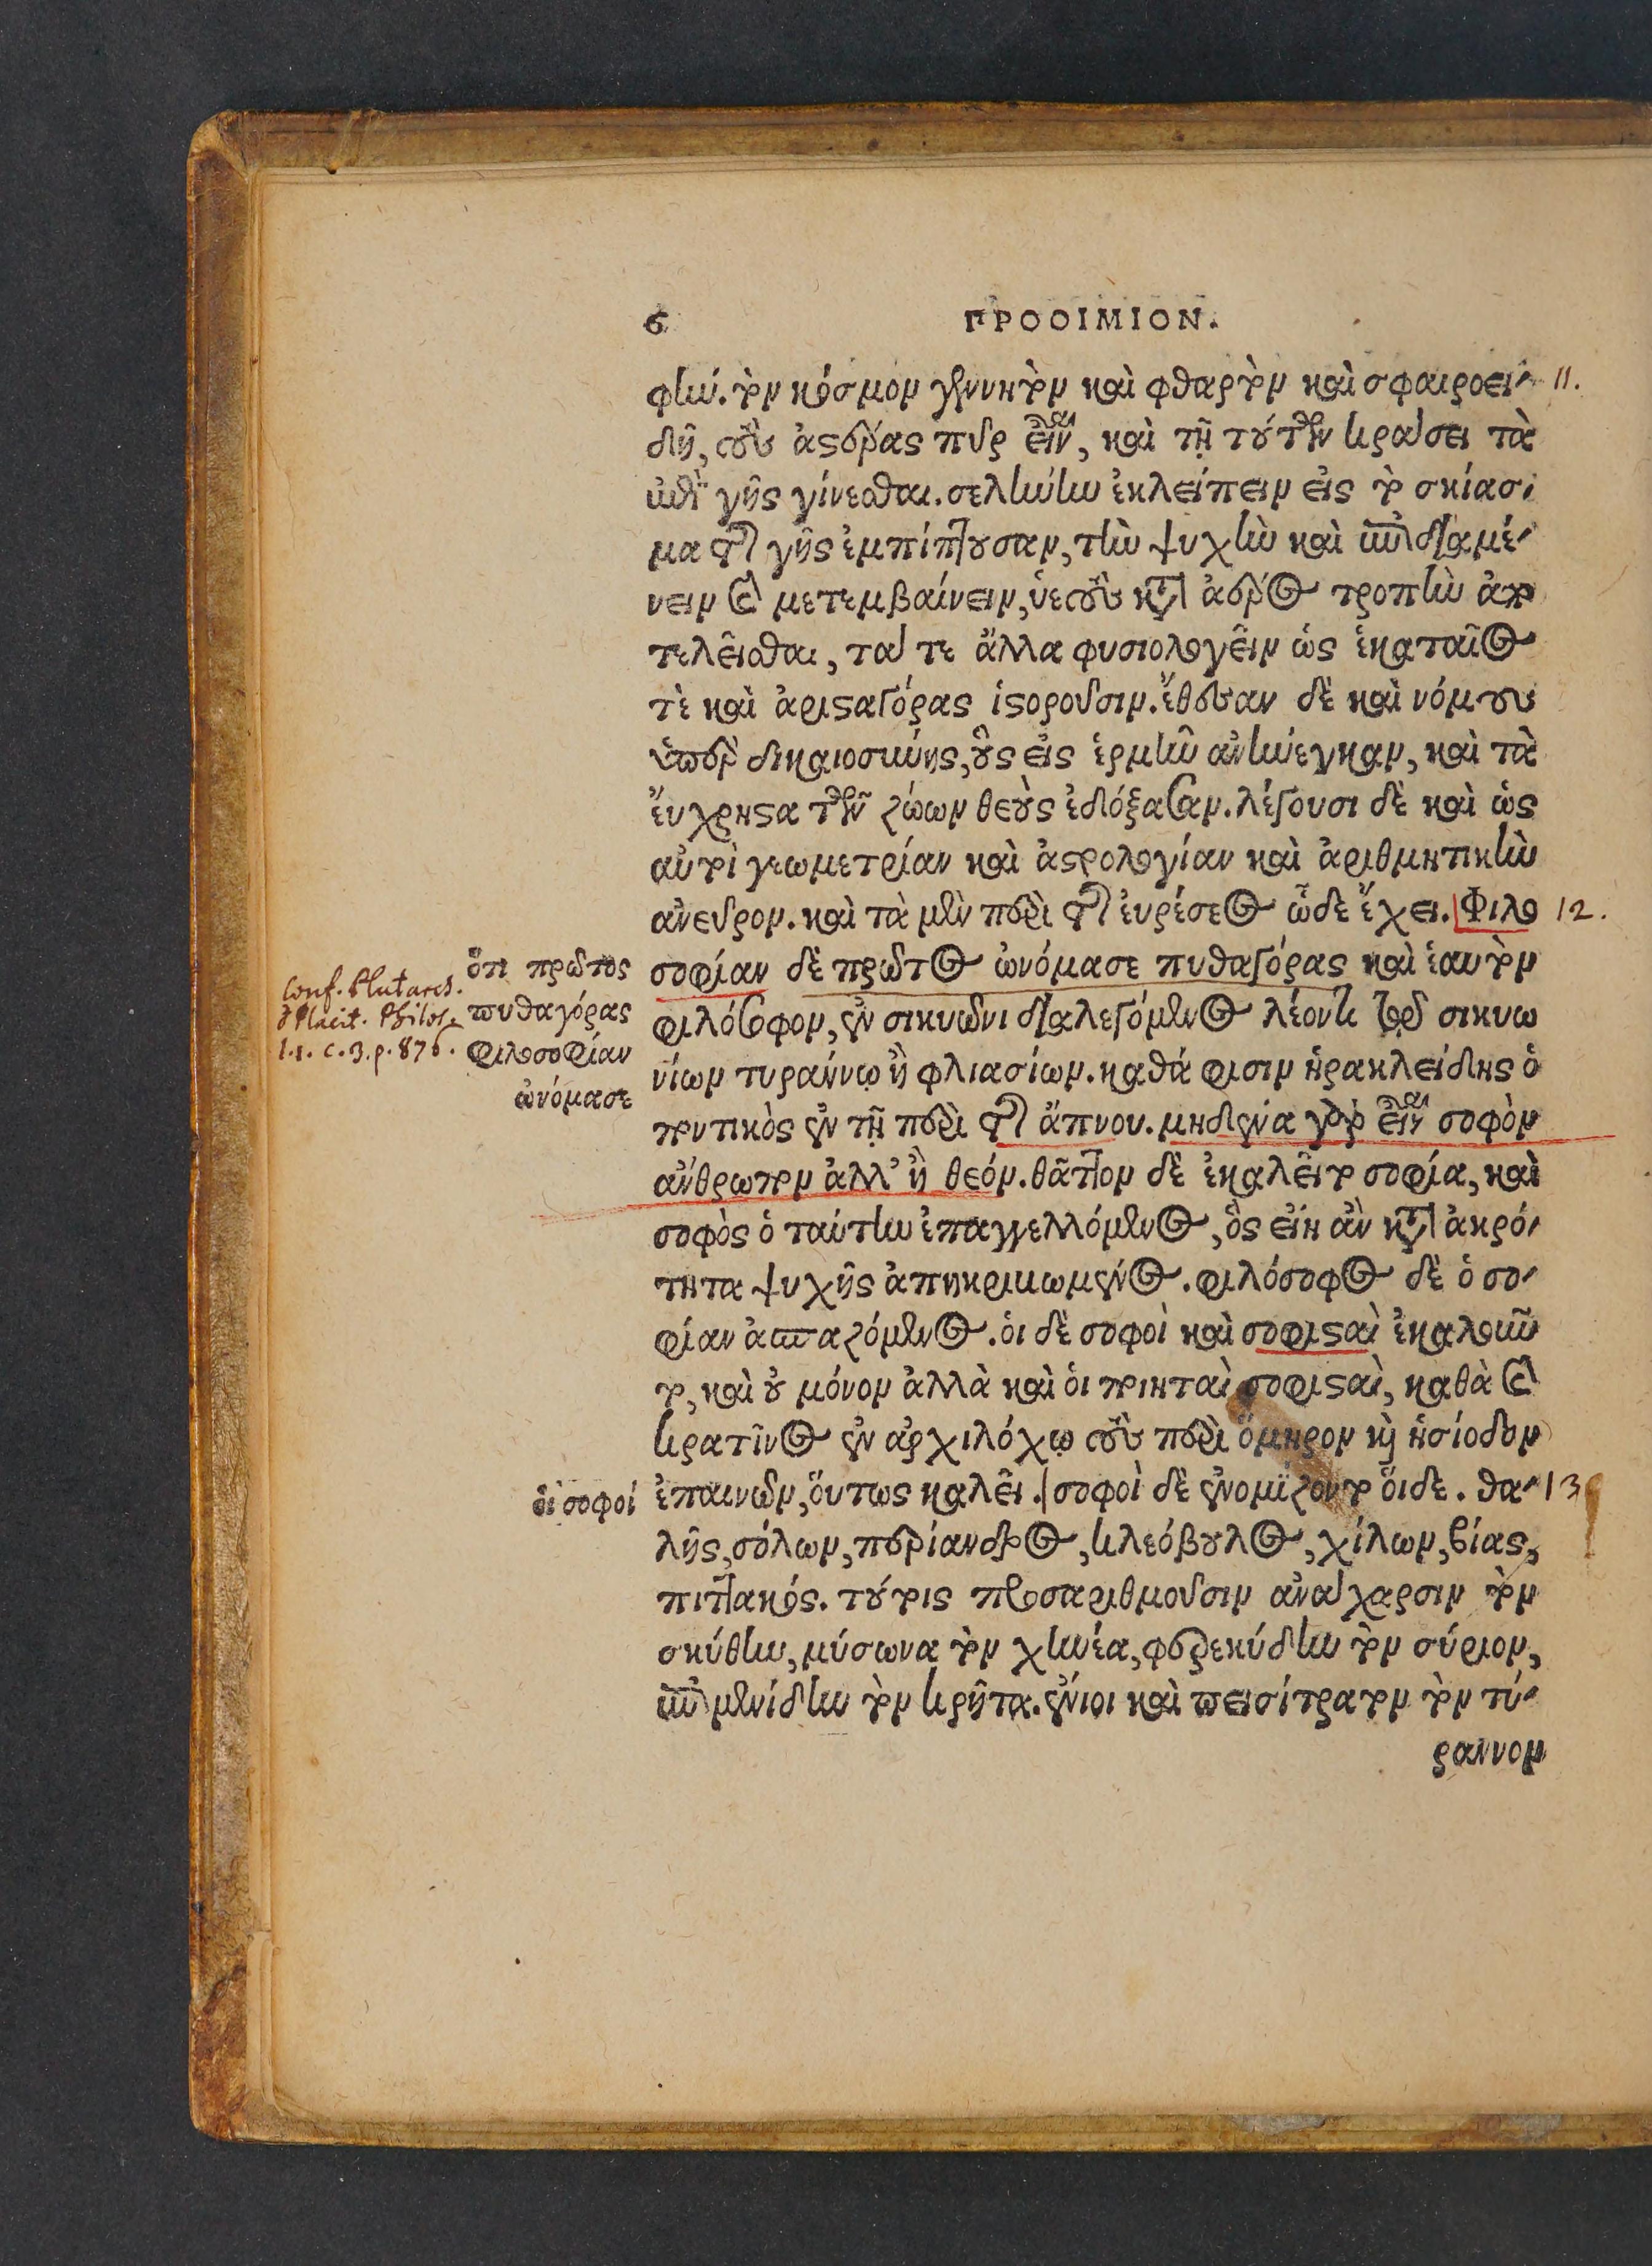 6 ΠΡΟΟΙΜΙΟΝ.
φήν. τὸν κόσμον γεννητὸν καὶ φθαρτὸν καὶ σφαιροει- 11.
δῆ, τοὺς ἀστέρας πῦρ εἶναι, καὶ τῇ τούτων κράσει τὰ
ἐπὶ γῆς γίνεσθαι. σελήνην ἐκλείπειν εἰς τὸ σκίασ-
μα τῆς γῆς ἐμπίπτουσαν, τὴν ψυχὴν καὶ ἐπιδιαμέ-
νειν καὶ μετεμβαίνειν, ὑετοὺς κατὰ ἀέρος τροπὴν ἀπο
τελεῖσθαι, τά τε ἄλλα φυσιολογεῖν ὡς ἑκαταῖος
τὲ καὶ ἀρισταγόρας ἱστοροῦσιν. ἔθεσαν δὲ καὶ νόμους
ὑπὲρ δικαιοσύνης, οὓς εἰς ἑρμῆν ἀνήνεγκαν, καὶ τὰ
ἔυχρηστα τῶν ζώων θεοὺς ἐδόξασαν. λέγουσι δὲ καὶ ὡς
αὐτοὶ γεωμετρίαν καὶ ἀστρολογίαν καὶ ἀριθμητικὴν
ἀνεῦρον. καὶ τὰ μὲν περὶ τῆς ἑυρέσεος ὧδε ἔχει. Φιλο 12.
σοφίαν δὲ πρῶτος ὠνόμασε πυθαγόρας καὶ ἑαυτὸν
ὅτι πρῶτος
πυθαγόρας
φιλοσοφίαν
ὠνόμασε
Conf. Plutarch.
d Placit. Philos.
l.1. c.3. p. 876.
φιλόσοφον, ἐν σικυῶνι διαλεγόμενος λέοντι τῷ σικυω
νίων τυράννῳ ἢ φλιασίων. καθά φισιν ἡρακλείδης ὁ
ποντικὸς ἐν τῇ περὶ τῆς ἄπνου. μηδένα γὰρ εἶναι σοφὸν
ἄνθρωπον ἀλλ' ἢ θεόν. θᾶττον δὲ ἐκαλεῖτο σοφία, καὶ
σοφὸς ὁ ταύτην ἐπαγγελλόμενος, ὃς εἴη ἂν κατὰ ἀκρό-
τητα ψυχῆς ἀπηκριβωμένος. φιλόσοφος δὲ ὁ σο-
φίαν ἀσπαζόμενος. ὁι δὲ σοφοὶ καὶ σοφισταὶ ἐκαλοῦν
το, καὶ οὐ μόνον ἀλλὰ καὶ ὁι ποιηταὶ σοφισταὶ, καθὰ καὶ
κρατῖνος ἐν ἀρχιλόχῳ τοὺς περὶ ὅμηρον καὶ ἡσίοδον
ἐπαινῶν, ὅυτως καλεῖ. σοφοὶ δὲ ἐνομίζοντο ὅιδε. θα- 13
ὁι σοφοί
λῆς, σόλων, περίανδρος, κλεόβουλος, χίλων, βίας,
πιττακός. τούτοις προσαριθμοῦσιν ἀνάχαρσιν τὸν
σκύθην, μύσωνα τὸν χηνέα, φερεκύδην τὸν σύριον,
ἐπιμενίδην τὸν κρῆτα. ἔνιοι καὶ πεισίτρατον τὸν τύ-
ραννον